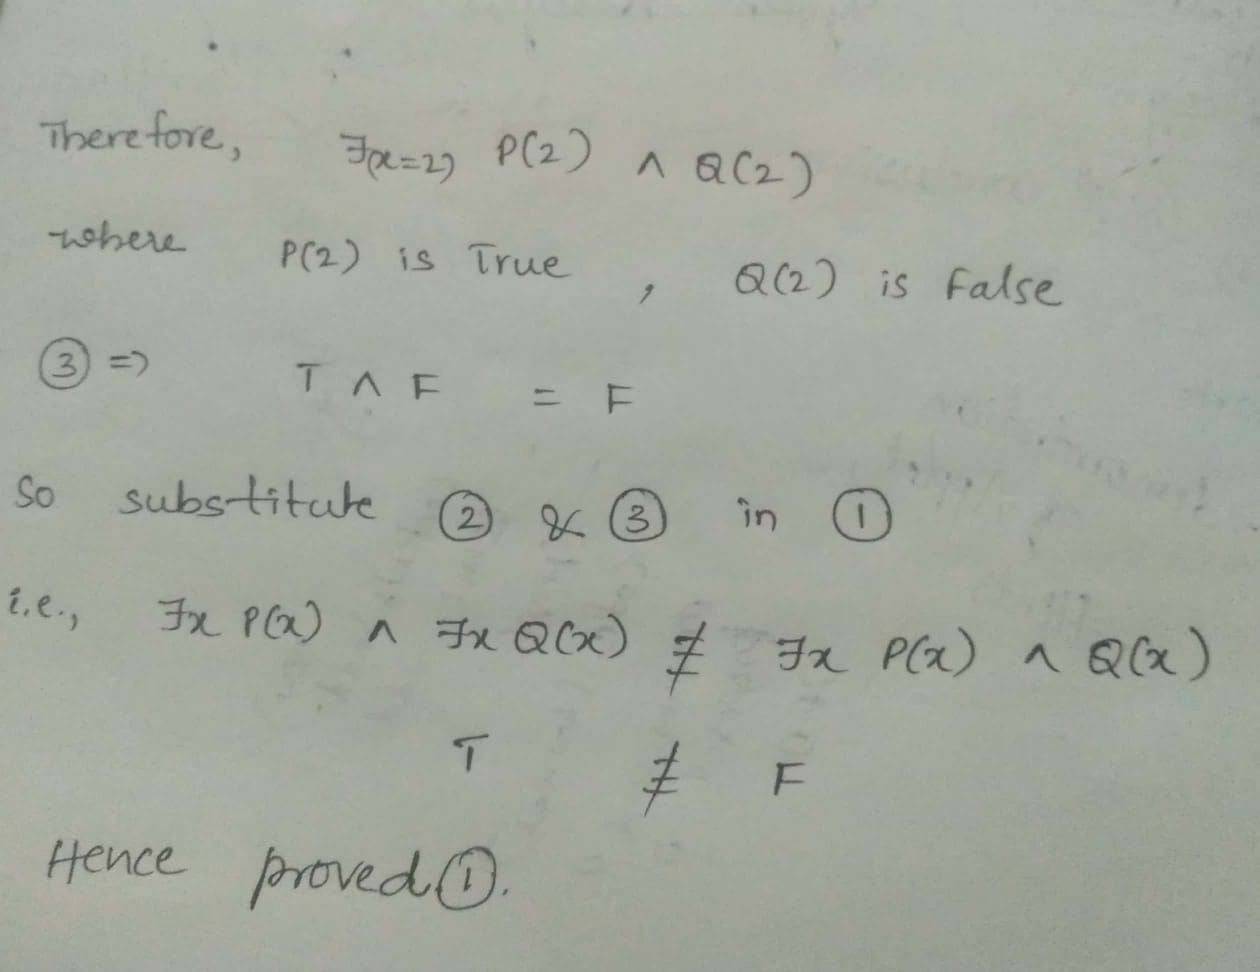 Therefore, ∃(x=2) P(2) ∧ Q(2)
where P(2) is True , Q(2) is False
③ => T ∧ F = F
So substitute ② & ③ in ①
i.e., ∃x P(x) ∧ ∃x Q(x) ≢ ∃x P(x) ∧ Q(x)
T ≢ F
Hence proved ①.